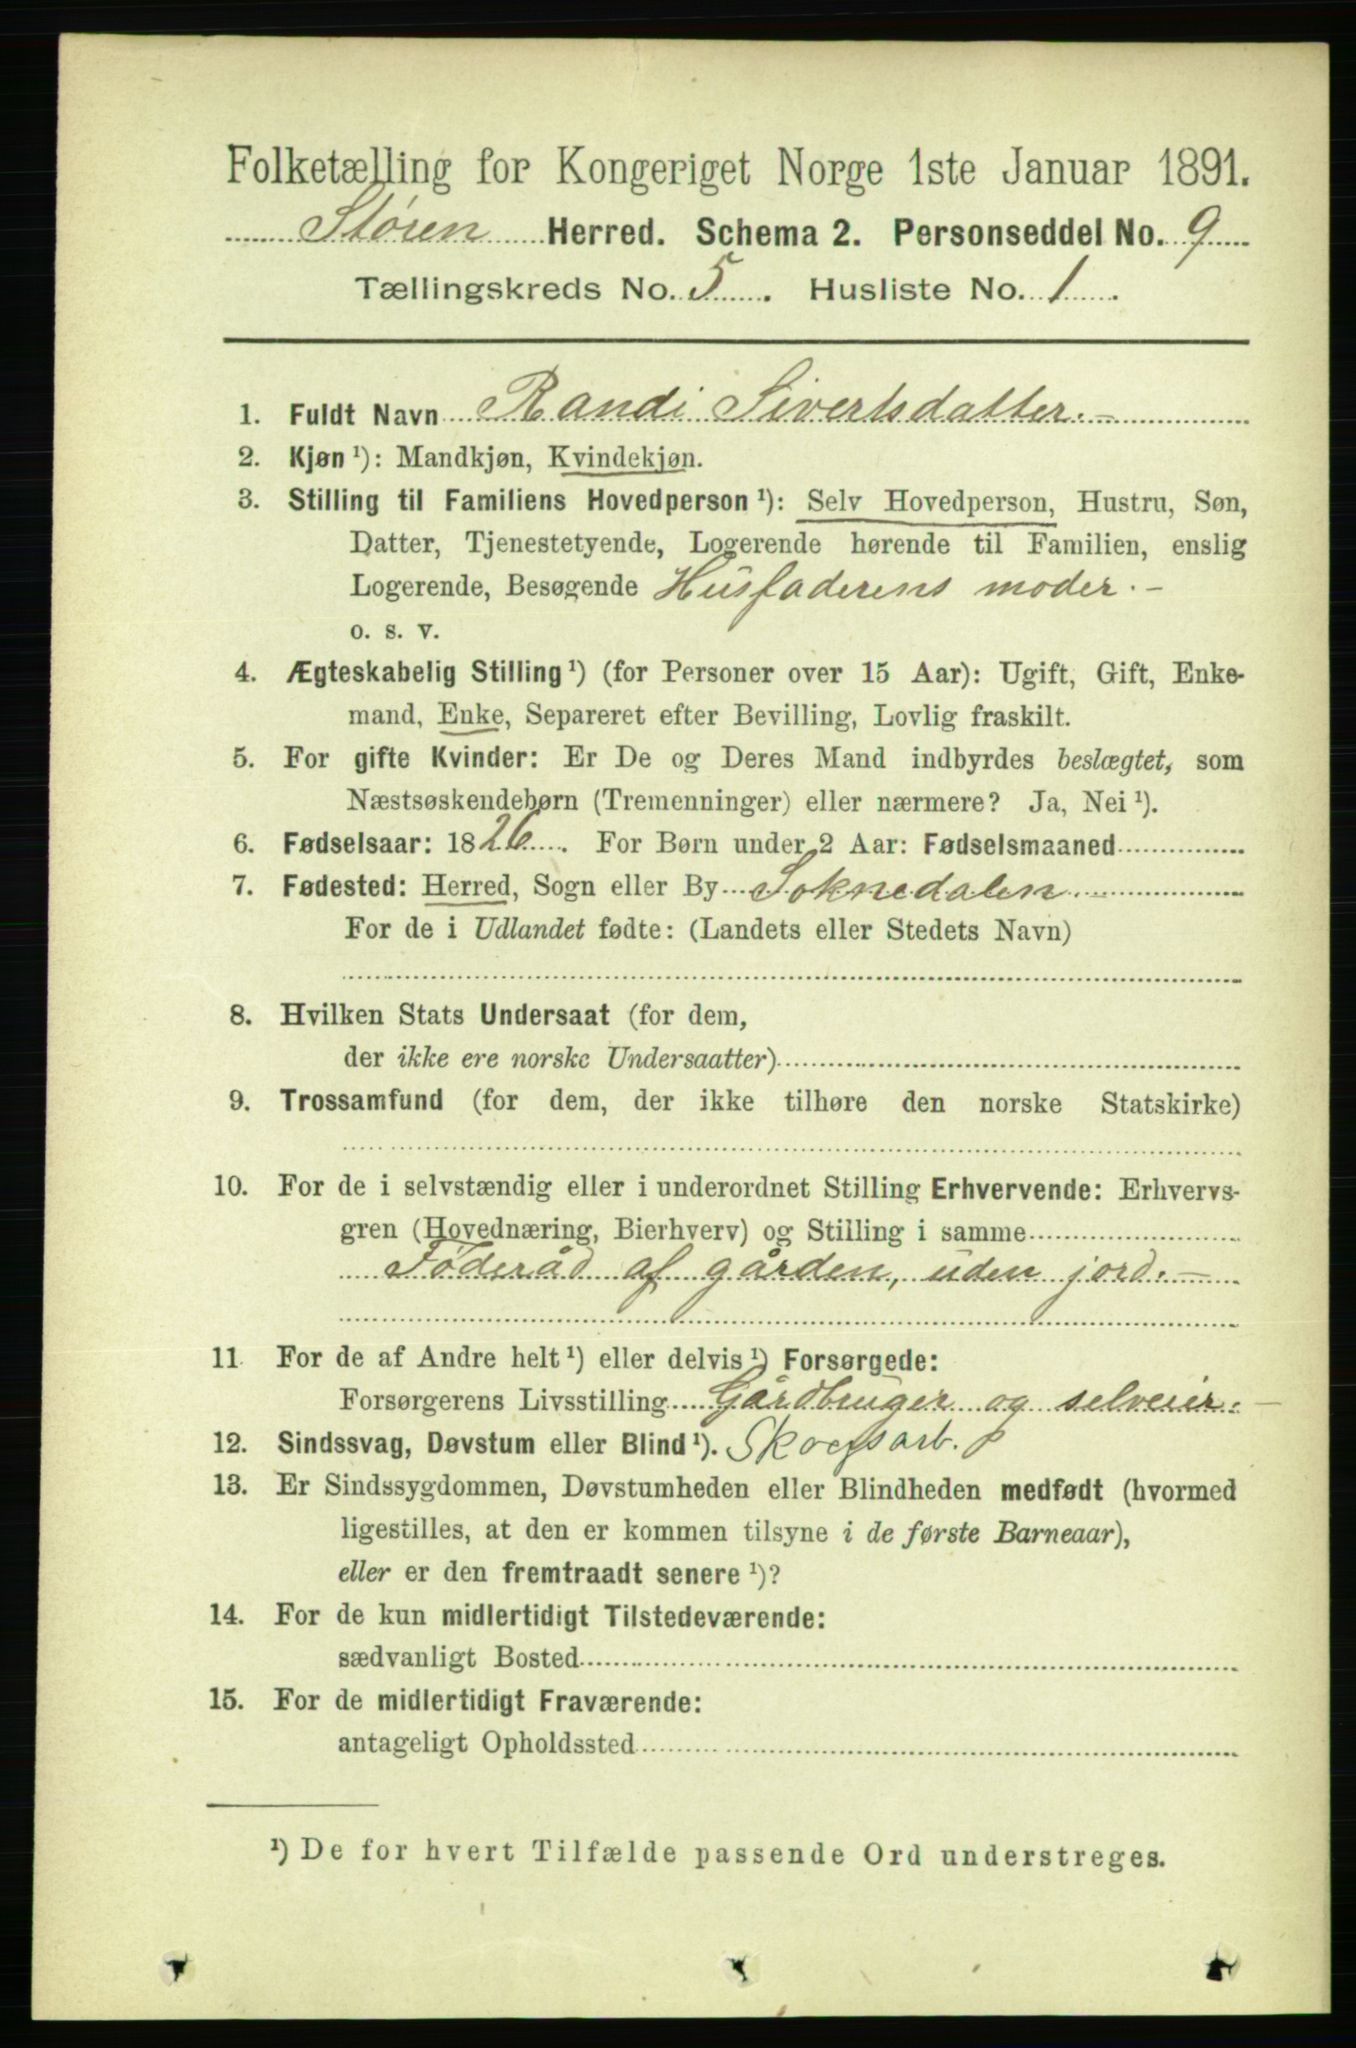 Folketælling for Kongeriget Norge 1ste Januar 1891.
Støren Herred. Schema 2. Personseddel No. 9
Tællingskreds No. 5. Husliste No. 1.
1. Fuldt Navn Randi Sivertsdatter.-
2. Kjøn ¹): Mandkjøn, Kvindekjøn.
3. Stilling til Familiens Hovedperson ¹): Selv Hovedperson, Hustru, Søn,
Datter, Tjenestetyende, Logerende hørende til Familien, enslig
Logerende, Besøgende Husfaderens moder.-
o. s. v.
4. Ægteskabelig Stilling ¹) (for Personer over 15 Aar): Ugift, Gift, Enke-
mand, Enke, Separeret efter Bevilling, Lovlig fraskilt.
5. For gifte Kvinder: Er De og Deres Mand indbyrdes beslægtet, som
Næstsøskendebørn (Tremenninger) eller nærmere? Ja, Nei ¹).
6. Fødselsaar: 1826. For Børn under 2 Aar: Fødselsmaaned
7. Fødested: Herred, Sogn eller By Soknedalen.
For de i Udlandet fødte: (Landets eller Stedets Navn)
8. Hvilken Stats Undersaat (for dem,
der ikke ere norske Undersaatter)
9. Trossamfund (for dem, der ikke tilhøre den norske Statskirke)
10. For de i selvstændig eller i underordnet Stilling Erhvervende: Erhvervs-
gren (Hovednæring, Bierhverv) og Stilling i samme
Føderåd af gården, uden jord.-
11 For de af Andre helt ¹) eller delvis ¹) Forsørgede:
Forsørgerens Livsstilling Gårdbruger og selveier.-
12. Sindssvag, Døvstum eller Blind ¹). Skovsarb.
13. Er Sindssygdommen, Døvstumheden eller Blindheden medfødt (hvormed
ligestilles, at den er kommen tilsyne i de første Barneaar),
eller er den fremtraadt senere ¹)?
14. For de kun midlertidigt Tilstedeværende:
sædvanligt Bosted
15. For de midlertidigt Fraværende:
antageligt Opholdssted
¹) De for hvert Tilfælde passende Ord understreges.